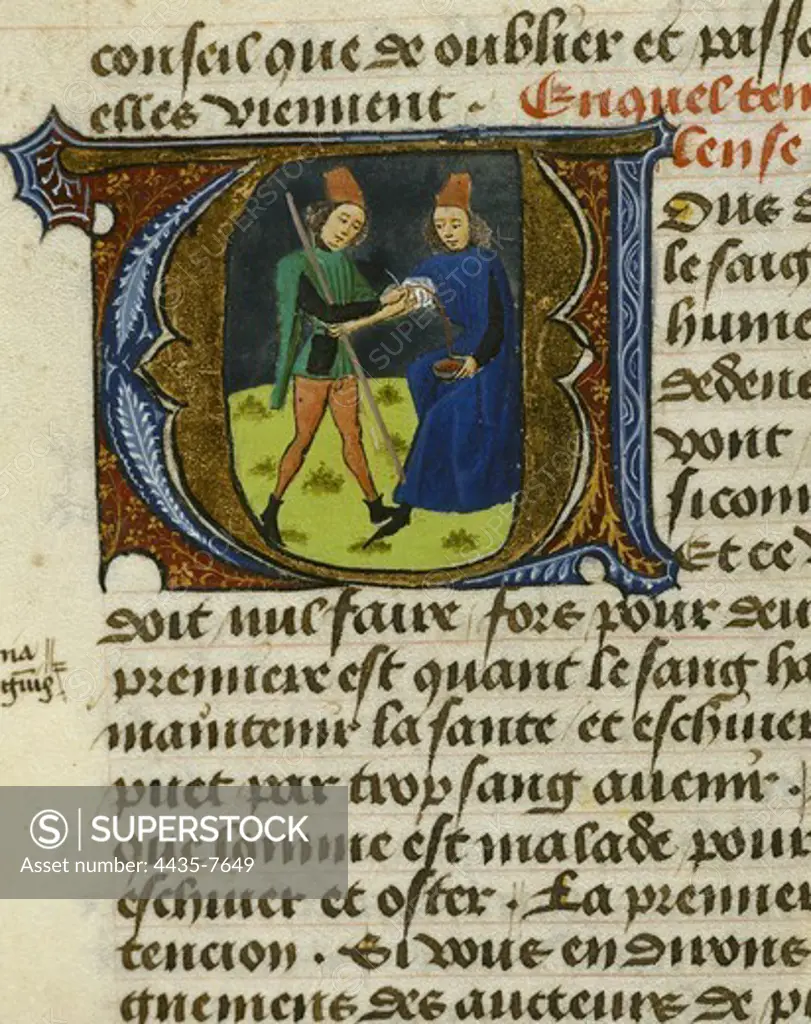 conseil que de oublier et passe
elles viennent. En quel ten
len se
Ous d
le sang
hume
dedens
vont
si com
Et ce v
doit nul faire fors pour deu
premiere est quant le sang ha
na
maintenir la sante et eschiuer
puet par trop sang auenir.
lomme est malade pour
eschiuer et oster. La premier
tencion. Si vous en dirons
gnemens des aucteurs de p
SUPERSTOCK
Asset number: 4435-7649